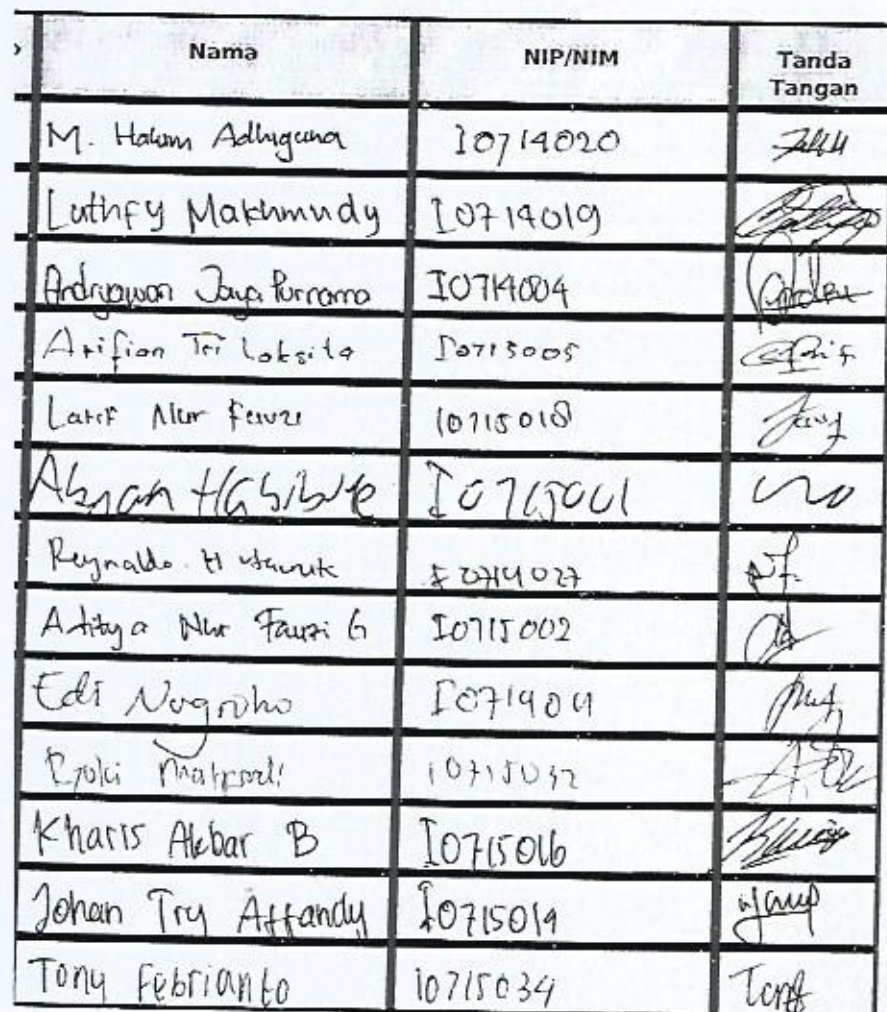 Nama NIP/NIM Tanda Tangan
M. Halim Adhiguna I0714020
Luthfy Makhmudy I0714019
Ardiyawan Jaya Purnama I0714004
Arifian Tri Laksita I0715005
Latif Nur Fauzi I0715018
Abyan Habibie I0715001
Reynaldo. Hutauruk I0714027
Aditya Nur Fauzi G I0715002
Edi Nugroho I0714011
I0715032
Kharis Akbar B I0715016
Johan Try Affandy I0715014
Tony Febrianto I0715034